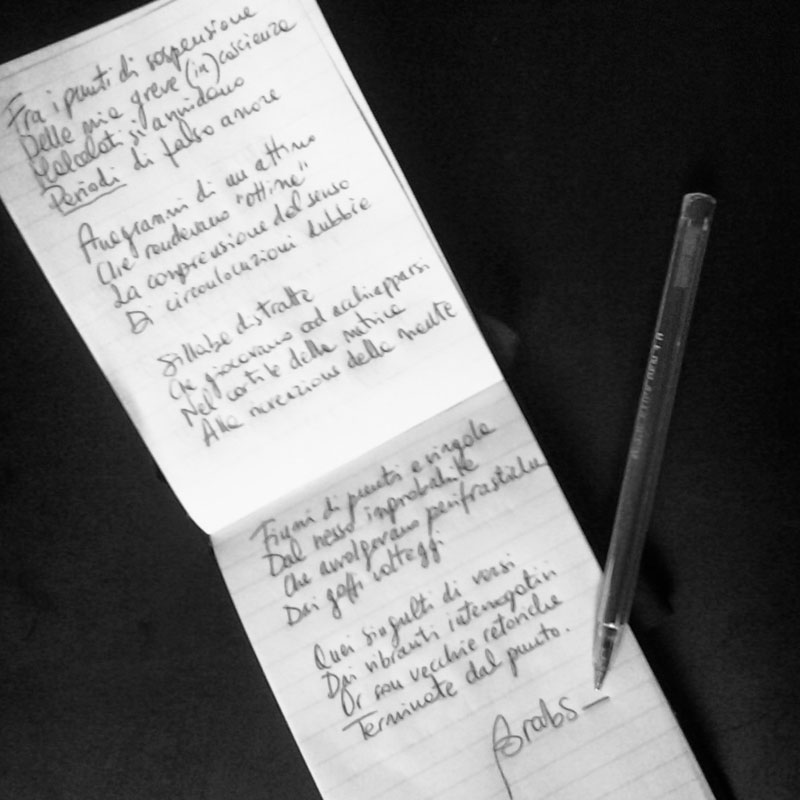 Fra i punti di sospensione
Della mia greve (in)coscienza
Calcolati si annidano
Periodi di falso amore
Anagrammi di un attimo
Che rendevano "ottima"
La comprensione del senso
Di circonlocuzioni dubbie
Sillabe distratte
Che giocavano ad acchiapparsi
Nel cortile della metrica
Alla ricreazione della mente
Fiumi di punti e virgole
Dal nesso improbabile
Che avvolgevano perifrastiche
Dai goffi volteggi
Quei singulti di versi
Dai vibranti interrogativi
Or son vecchie retoriche
Terminate dal punto.